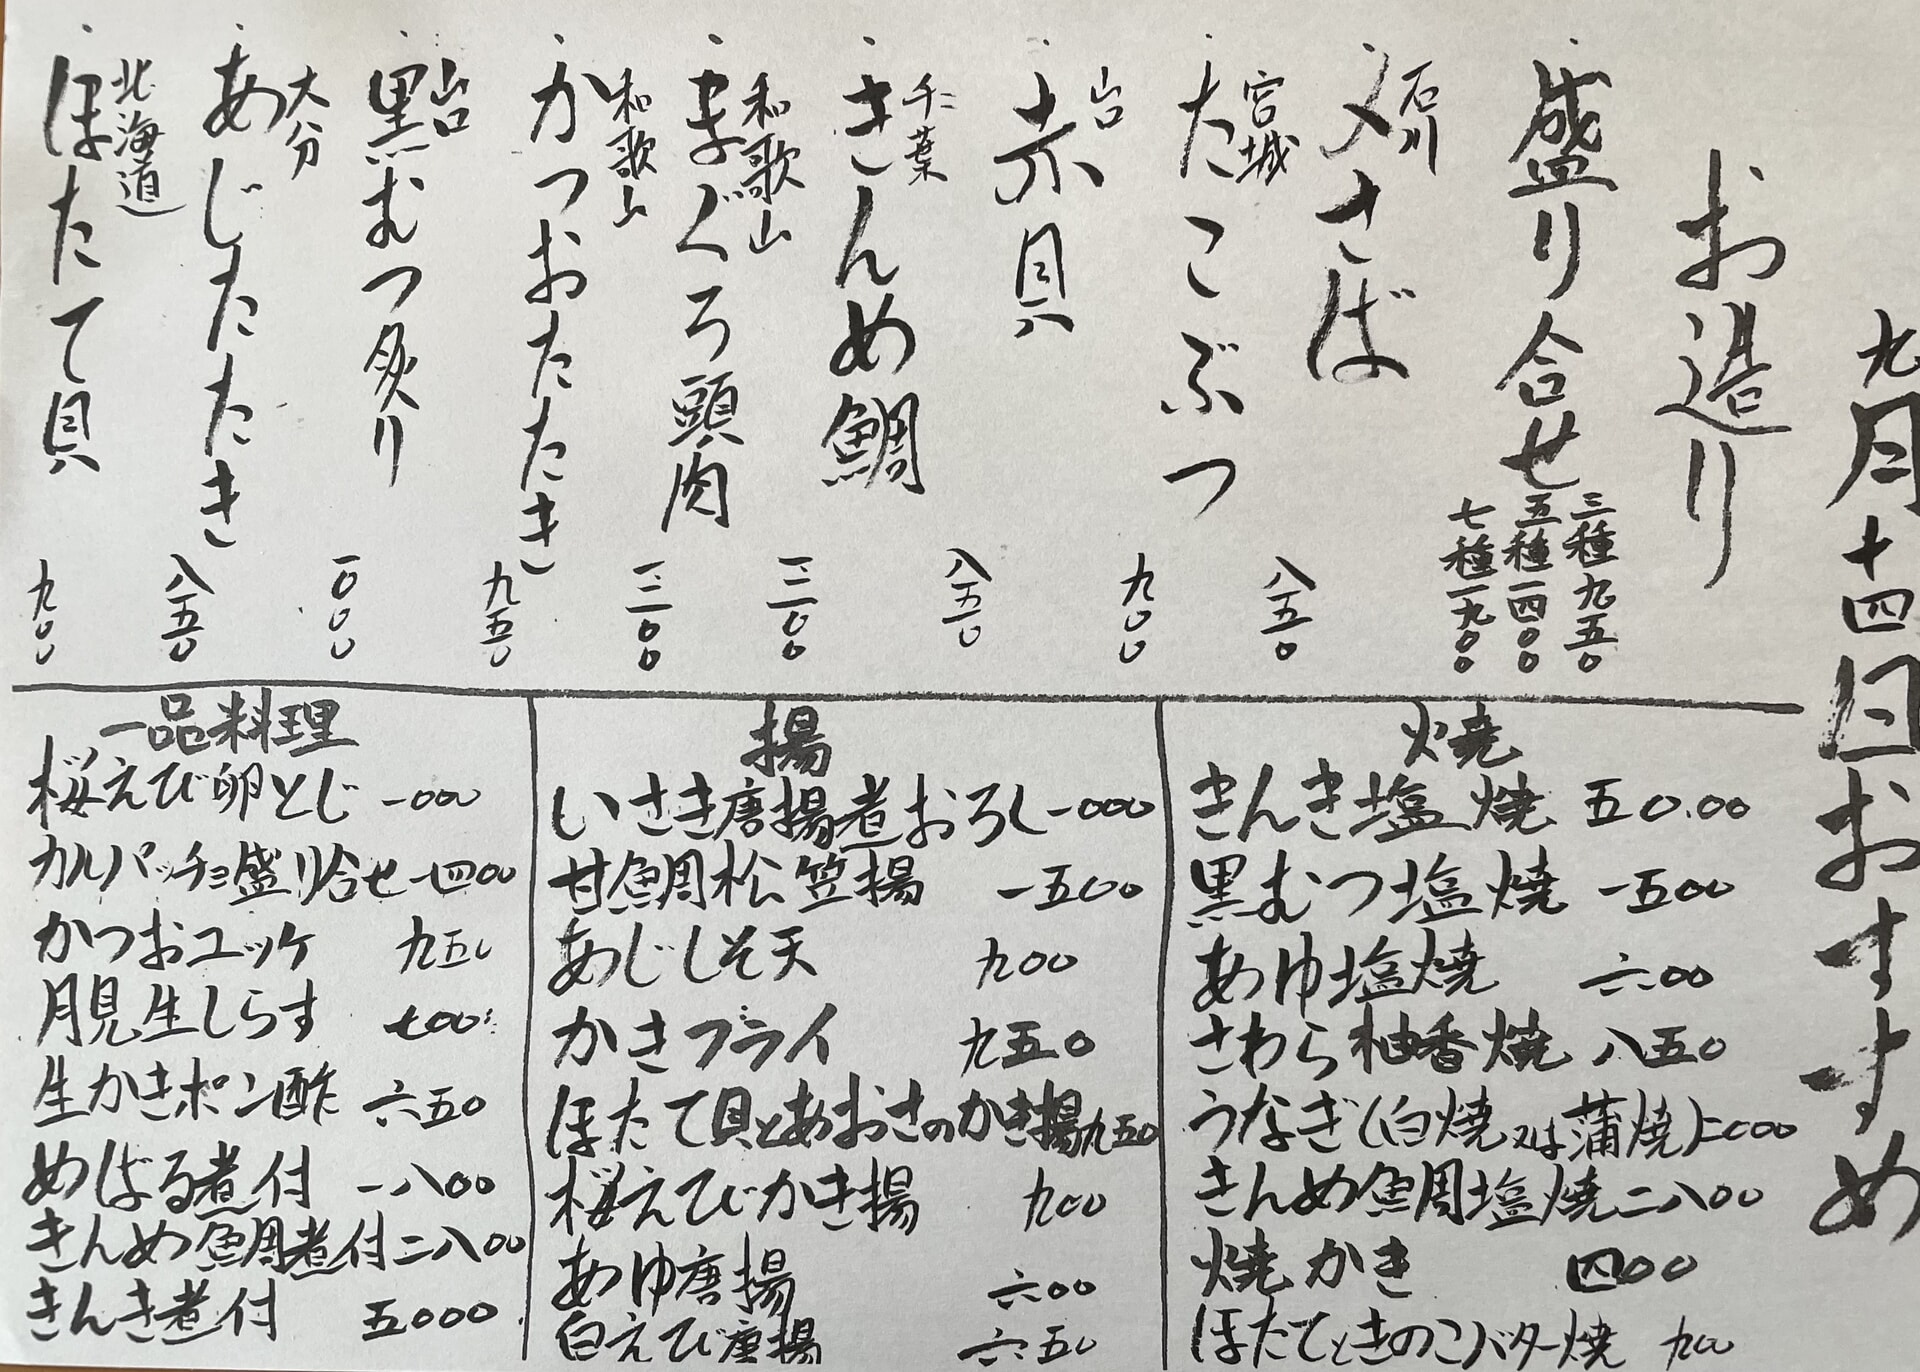 九月十四日おすすめ
お造り
盛り合せ
三種 九五〇
五種 一四〇〇
七種 一九〇〇
石川 〆さば 八五〇
宮城 たこぶつ 九〇〇
山口 赤貝 八五〇
千葉 きんめ鯛 一三〇〇
和歌山 まぐろ頭肉
和歌山 かつおたたき 九五〇
山口 黒むつ炙り 一〇〇〇
大分 あじたたき 八五〇
北海道 ほたて貝 九〇〇
焼
きんき塩焼 五〇.〇〇
黒むつ塩焼 一五〇〇
あゆ塩焼 六〇〇
さわら柚香焼 八五〇
うなぎ(白焼又は蒲焼)二〇〇〇
きんめ鯛塩焼 二八〇〇
焼かき 四〇〇
ほたてときのこバター焼 九〇〇
揚
いさき唐揚煮おろし 一〇〇〇
甘鯛松笠揚 一五〇〇
あじしそ天 九〇〇
かきフライ 九五〇
ほたて貝とあおさのかき揚 九五〇
桜えびかき揚 九〇〇
あゆ唐揚 六〇〇
白えび唐揚 六五〇
一品料理
桜えび卵とじ 一〇〇〇
カルパッチョ盛り合せ 一四〇〇
かつおユッケ 九五〇
月見生しらす 七〇〇
生かきポン酢 六五〇
めばる煮付 一八〇〇
きんめ鯛煮付 二八〇〇
きんき煮付 五〇〇〇